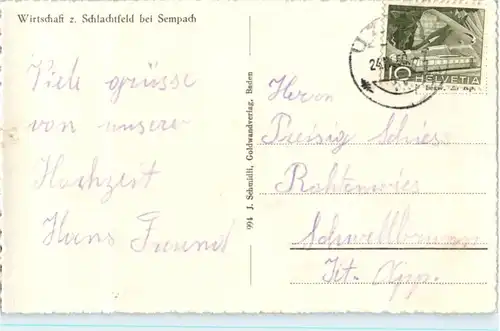 Wirtschaft z. Schlachtfeld bei Sempach
Viele grüsse
von unserer
Hochzeit
Hans Freund
994 J. Schmidli, Goldwandverlag, Baden
10
HELVETIA
Herrn
Preisig
Schwellbrunn
Kt. App.